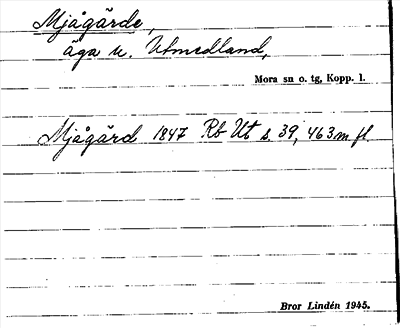 Mjågärde,
äga u. Utmedland,
Mora sn o. tg, Kopp. l.
Mjågärd 1847 Rb Ut s. 39, 463 m fl.
Bror Lindén 1945.